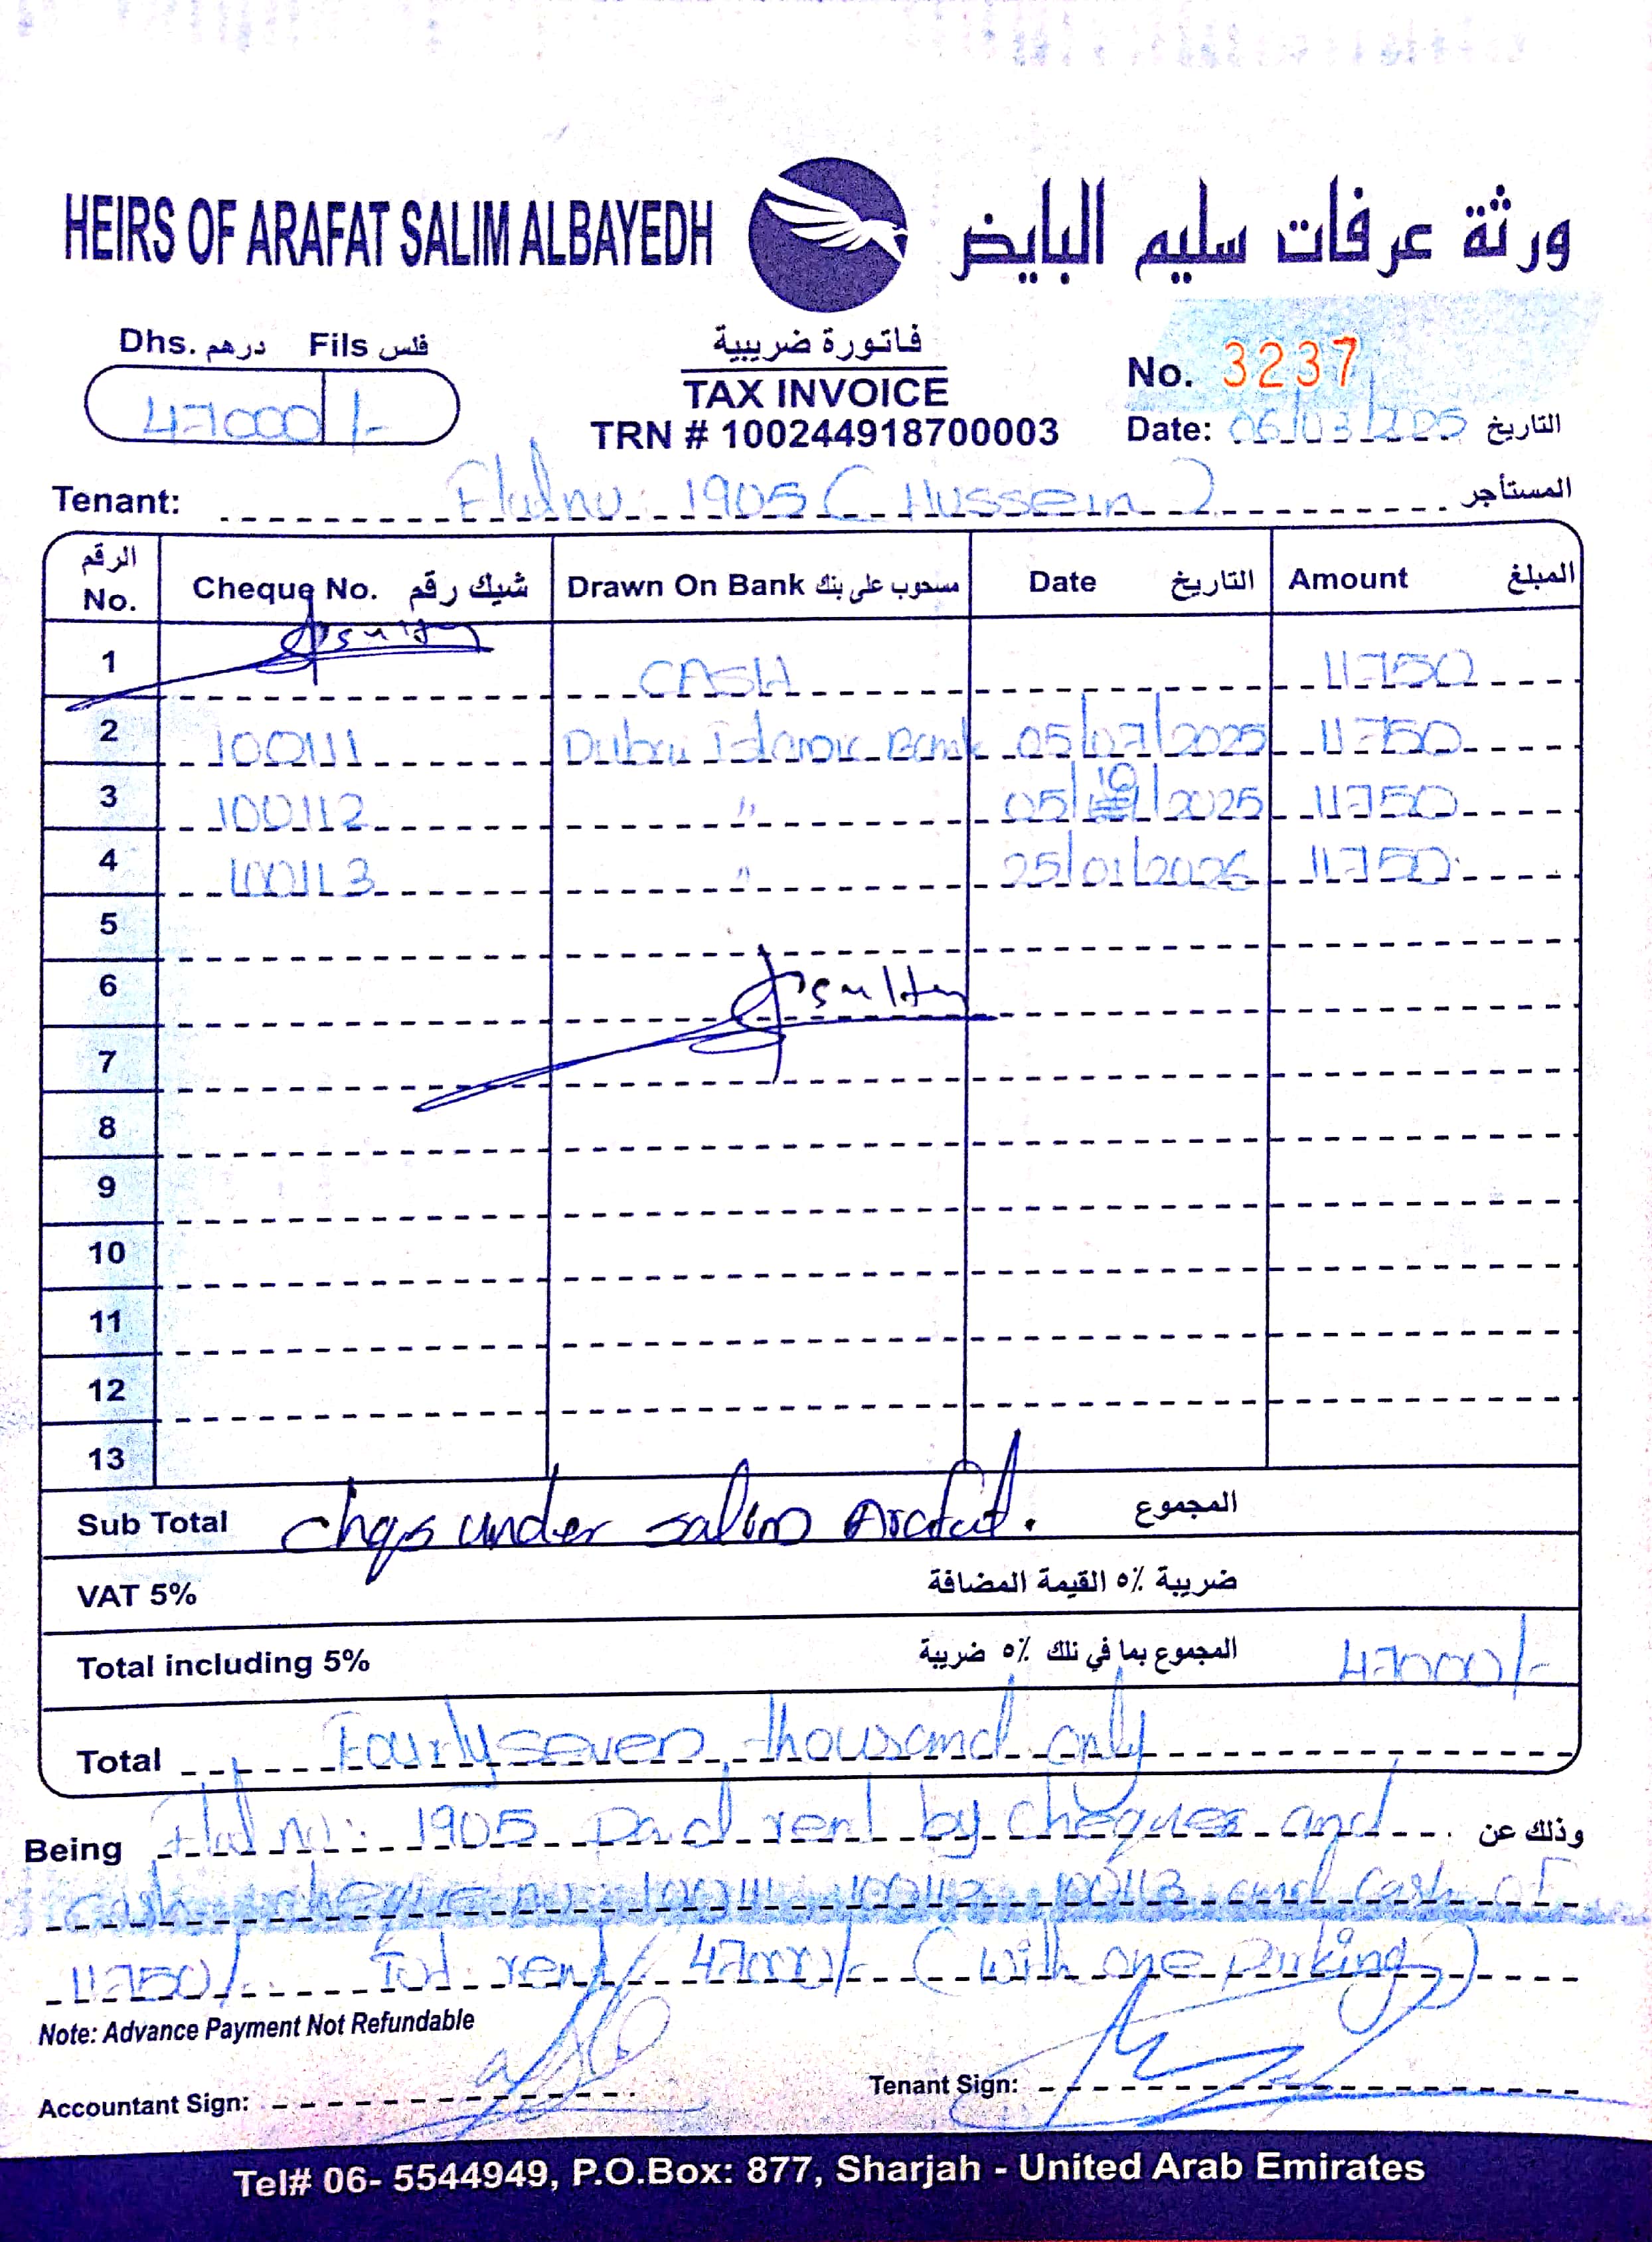 HEIRS OF ARAFAT SALIM ALBAYEDH ورثة عرفات سليم البايض
Dhs. درهم Fils فلس
47000/-
فاتورة ضريبية
TAX INVOICE
TRN # 100244918700003
No. 3237
Date: 06/03/2025 التاريخ
Tenant: Flat no: 1905 (Hussein) المستأجر
الرقم No. Cheque No. شيك رقم Drawn On Bank مسحوب على بنك Date التاريخ Amount المبلغ
1 CASH 11750
2 100111 Dubai Islamic Bank 05/07/2025 11750
3 100112 " 05/10/2025 11750
4 100113 " 25/01/2026 11750
5
6
7
8
9
10
11
12
13
Sub Total chqs under salim Arafat. المجموع
VAT 5% ضريبة ٥٪ القيمة المضافة
Total including 5% المجموع بما في ذلك ٥٪ ضريبة 47000/-
Total Fourty seven thousand only
Being Flat no: 1905 Paid rent by cheques and وذلك عن
cash cheque no: 100111 100112 100113 and cash of
11750/- Tot rent 47000/- (with one parking)
Note: Advance Payment Not Refundable
Accountant Sign: Tenant Sign:
Tel# 06- 5544949, P.O.Box: 877, Sharjah - United Arab Emirates